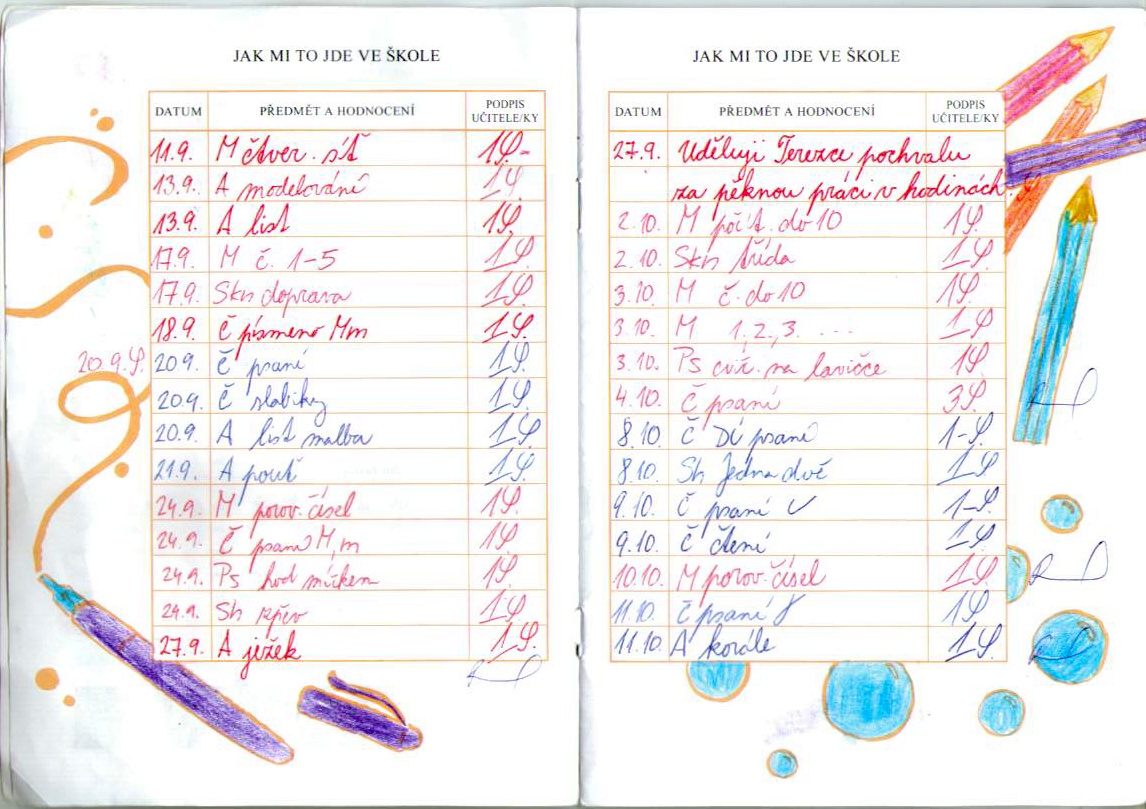 JAK MI TO JDE VE ŠKOLE
DATUM PŘEDMĚT A HODNOCENÍ PODPIS UČITELE/KY
11.9. M čtver. síť 1-
13.9. A modelování 1
13.9. A list 1
17.9. M č. 1-5 1
17.9. Skn doprava 1
18.9. Č písmeno Mm 1
20.9. 20.9. Č psaní 1
20.9. Č slabiky 1
20.9. A list malba 1
21.9. A pouť 1
24.9. M porov. čísel 1
24.9. Č psaní M, m 1
24.9. Ps hod míčkem 1
24.9. Sh zpěv 1
27.9. A ježek 1
JAK MI TO JDE VE ŠKOLE
DATUM PŘEDMĚT A HODNOCENÍ PODPIS UČITELE/KY
27.9. Uděluji Terezce pochvalu
za pěknou práci v hodinách.
2.10. M počít. do 10 1
2.10. Skn třída 1
3.10. M č. do 10 1
3.10. M 1, 2, 3. ... 1
3.10. Ps cvič. na lavičce 1
4.10. Č psaní 3
8.10. Č Dí psaní 1-
8.10. Sh Jedna dvě 1
9.10. Č psaní 1-
9.10. Č čtení 1
10.10. M porov. čísel 1
11.10. Č psaní 1
11.10. A korále 1